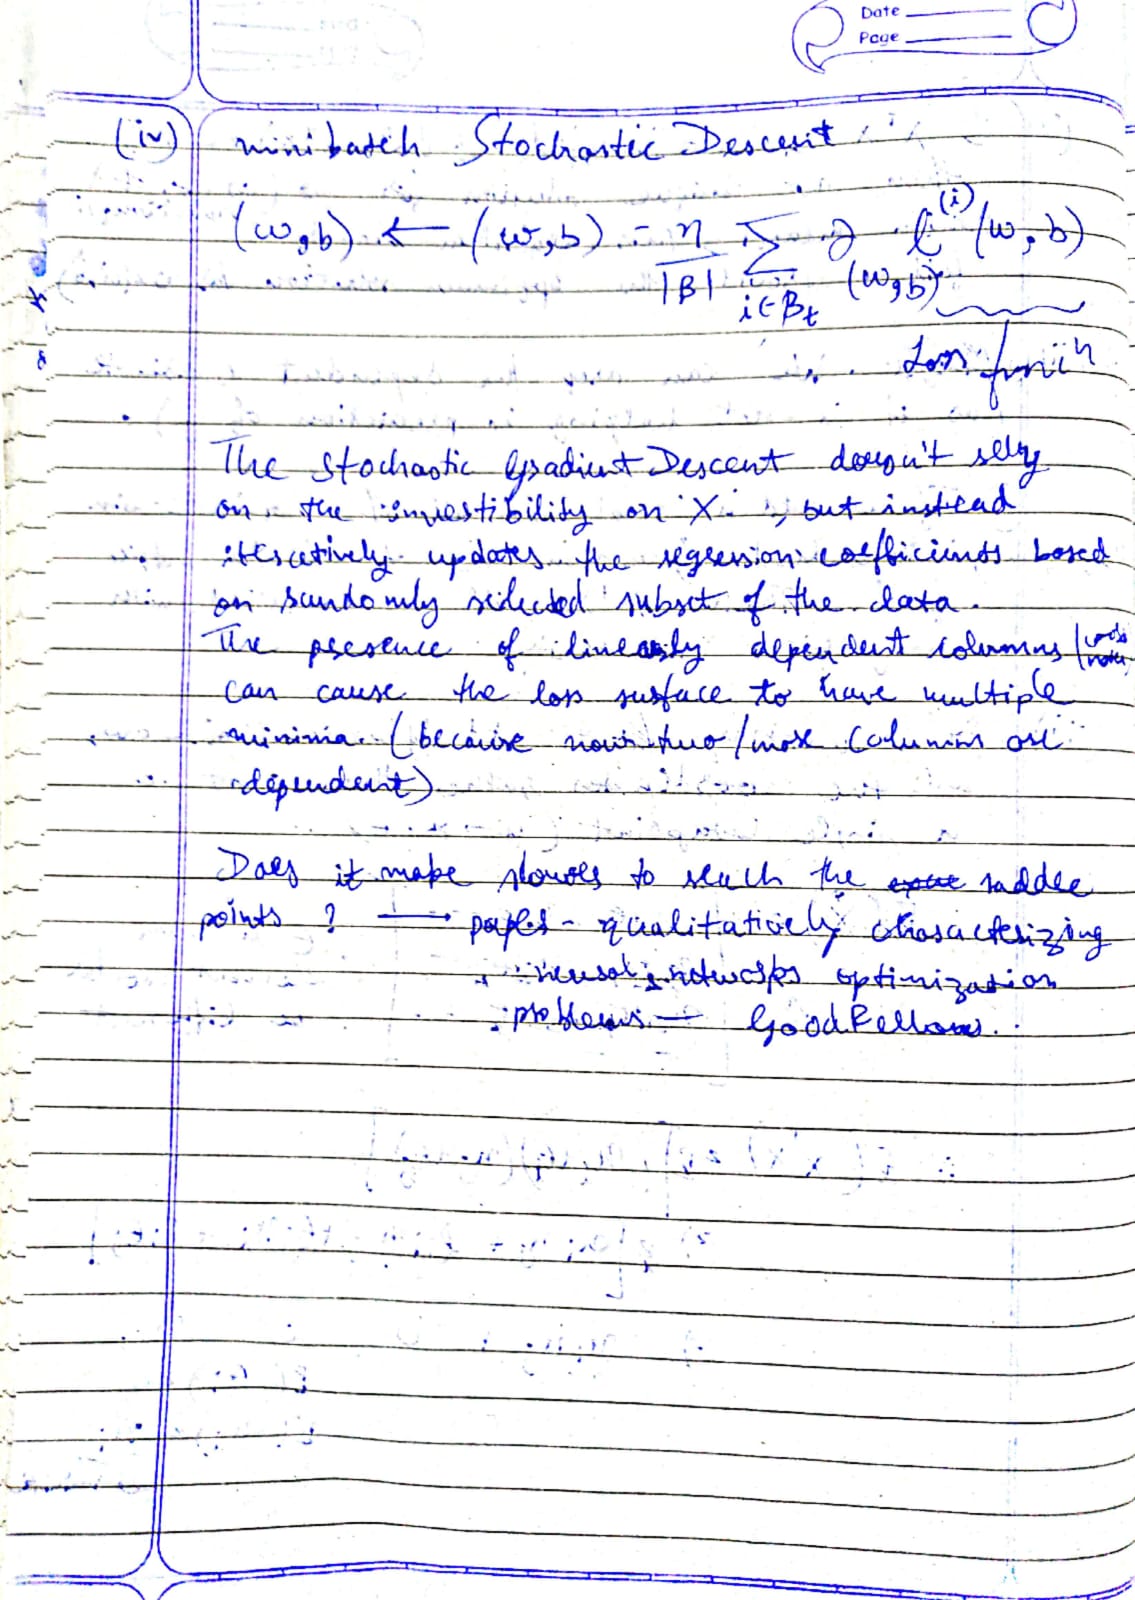 Date
Page
(iv) minibatch Stochastic Descent
(w,b) ← (w,b) - η/|B| Σ_{i∈B_t} ∂_{(w,b)} l^{(i)} (w,b)
Loss funcⁿ
The Stochastic Gradient Descent doesn't rely
on the invertibility on X , but instead
iteratively updates the regression coefficients based
on randomly selected subset of the data.
The presence of linearly dependent columns
can cause the loss surface to have multiple
minima. (because now two/more columns are
dependent)
Does it make slower to reach the saddle
points ? → paper - qualitatively characterizing
neural networks optimization
problems — GoodFellows.